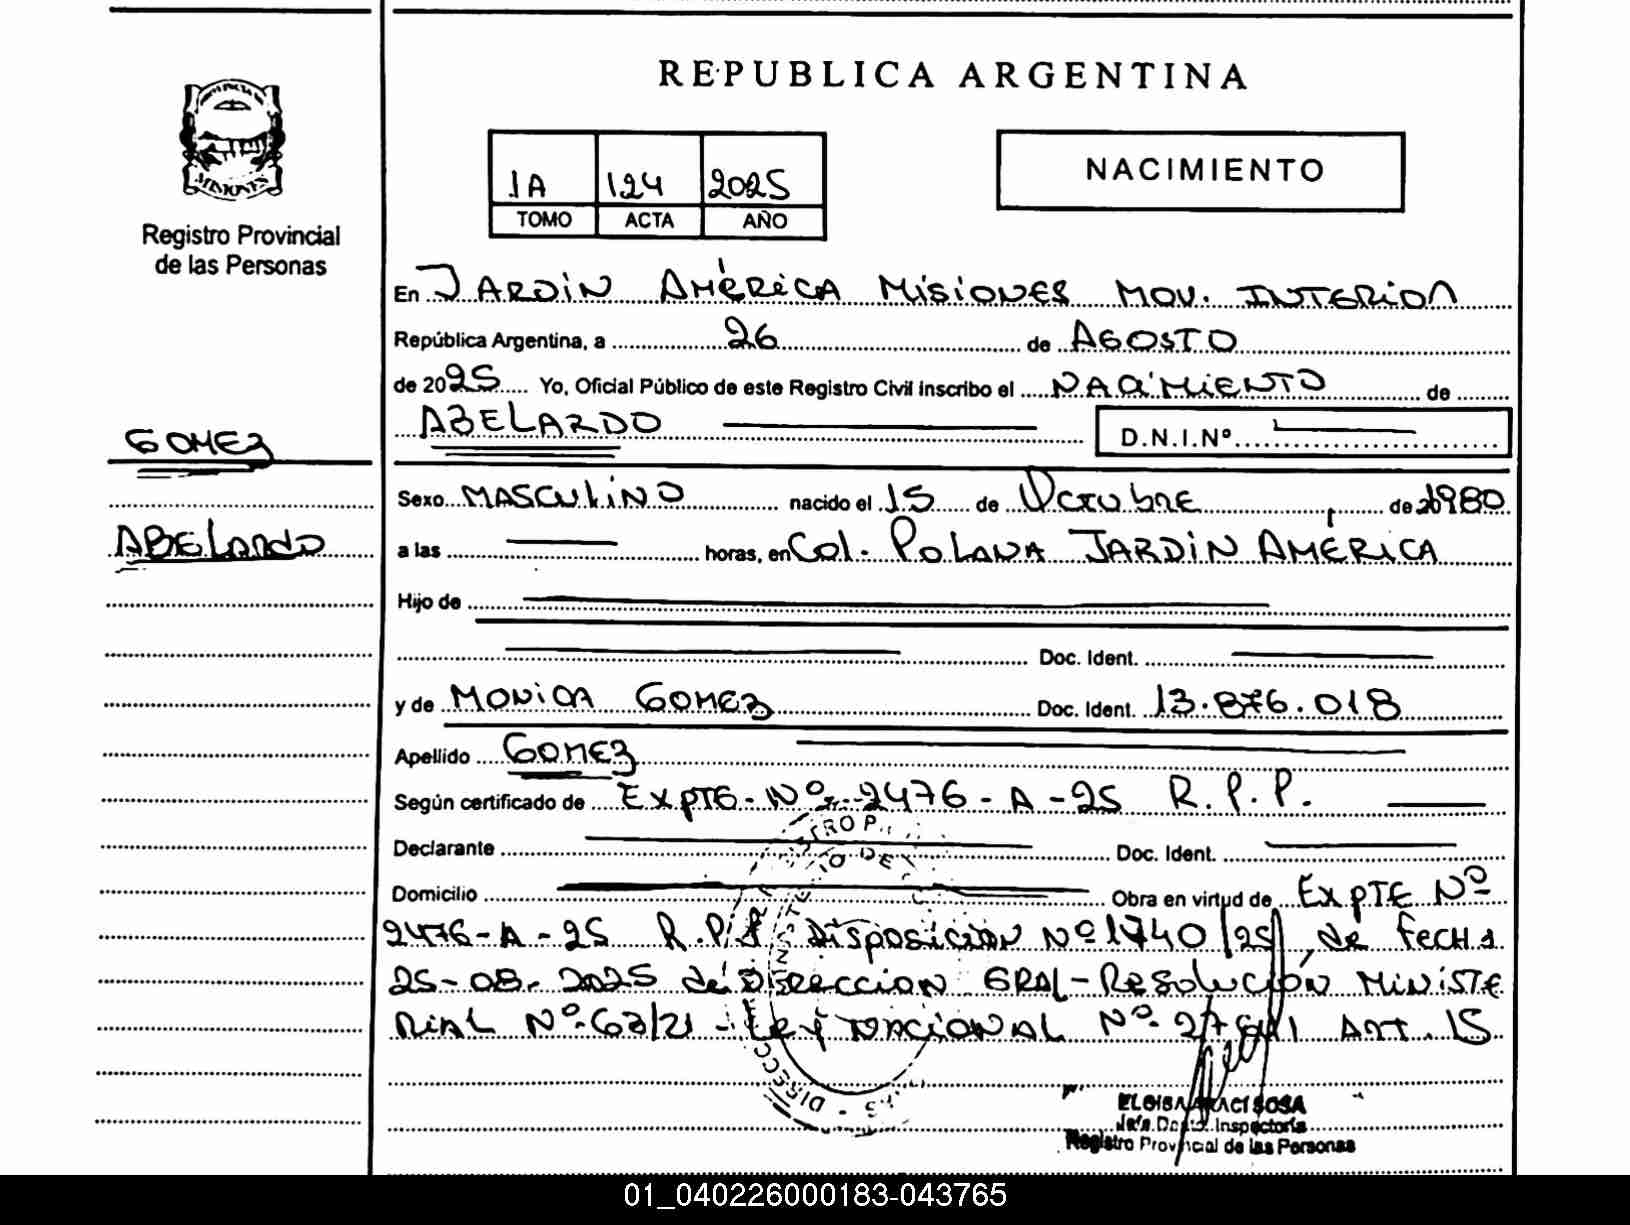 REPUBLICA ARGENTINA
MISIONES
Registro Provincial
de las Personas
1A 124 2025
TOMO ACTA AÑO
NACIMIENTO
En JARDIN AMÉRICA MISIONES MOV. INTERIOR
República Argentina, a 26 de AGOSTO
de 2025 Yo, Oficial Público de este Registro Civil inscribo el NACIMIENTO de
ABELARDO D.N.I.Nº
GOMEZ
ABELARDO
Sexo MASCULINO nacido el 15 de Octubre de 1980
a las horas, en Col. POLANA JARDIN AMÉRICA
Hijo de
Doc. Ident.
y de MONICA GOMEZ Doc. Ident. 13.876.018
Apellido GOMEZ
Según certificado de EXPTE. Nº 2476-A-25 R.P.P.
Declarante Doc. Ident.
Domicilio Obra en virtud de EXPTE Nº
2476-A-25 R.P.P. DISPOSICION Nº 1740/25 de FECHA
25-08-2025 de DIRECCION GRAL-RESOLUCIÓN MINISTE
RIAL Nº 63/21 - LEY NACIONAL Nº 27 ART. 15
ELOISA ARACI SOSA
Jefa Dpto. Inspectoría
Registro Provincial de las Personas
01_040226000183-043765